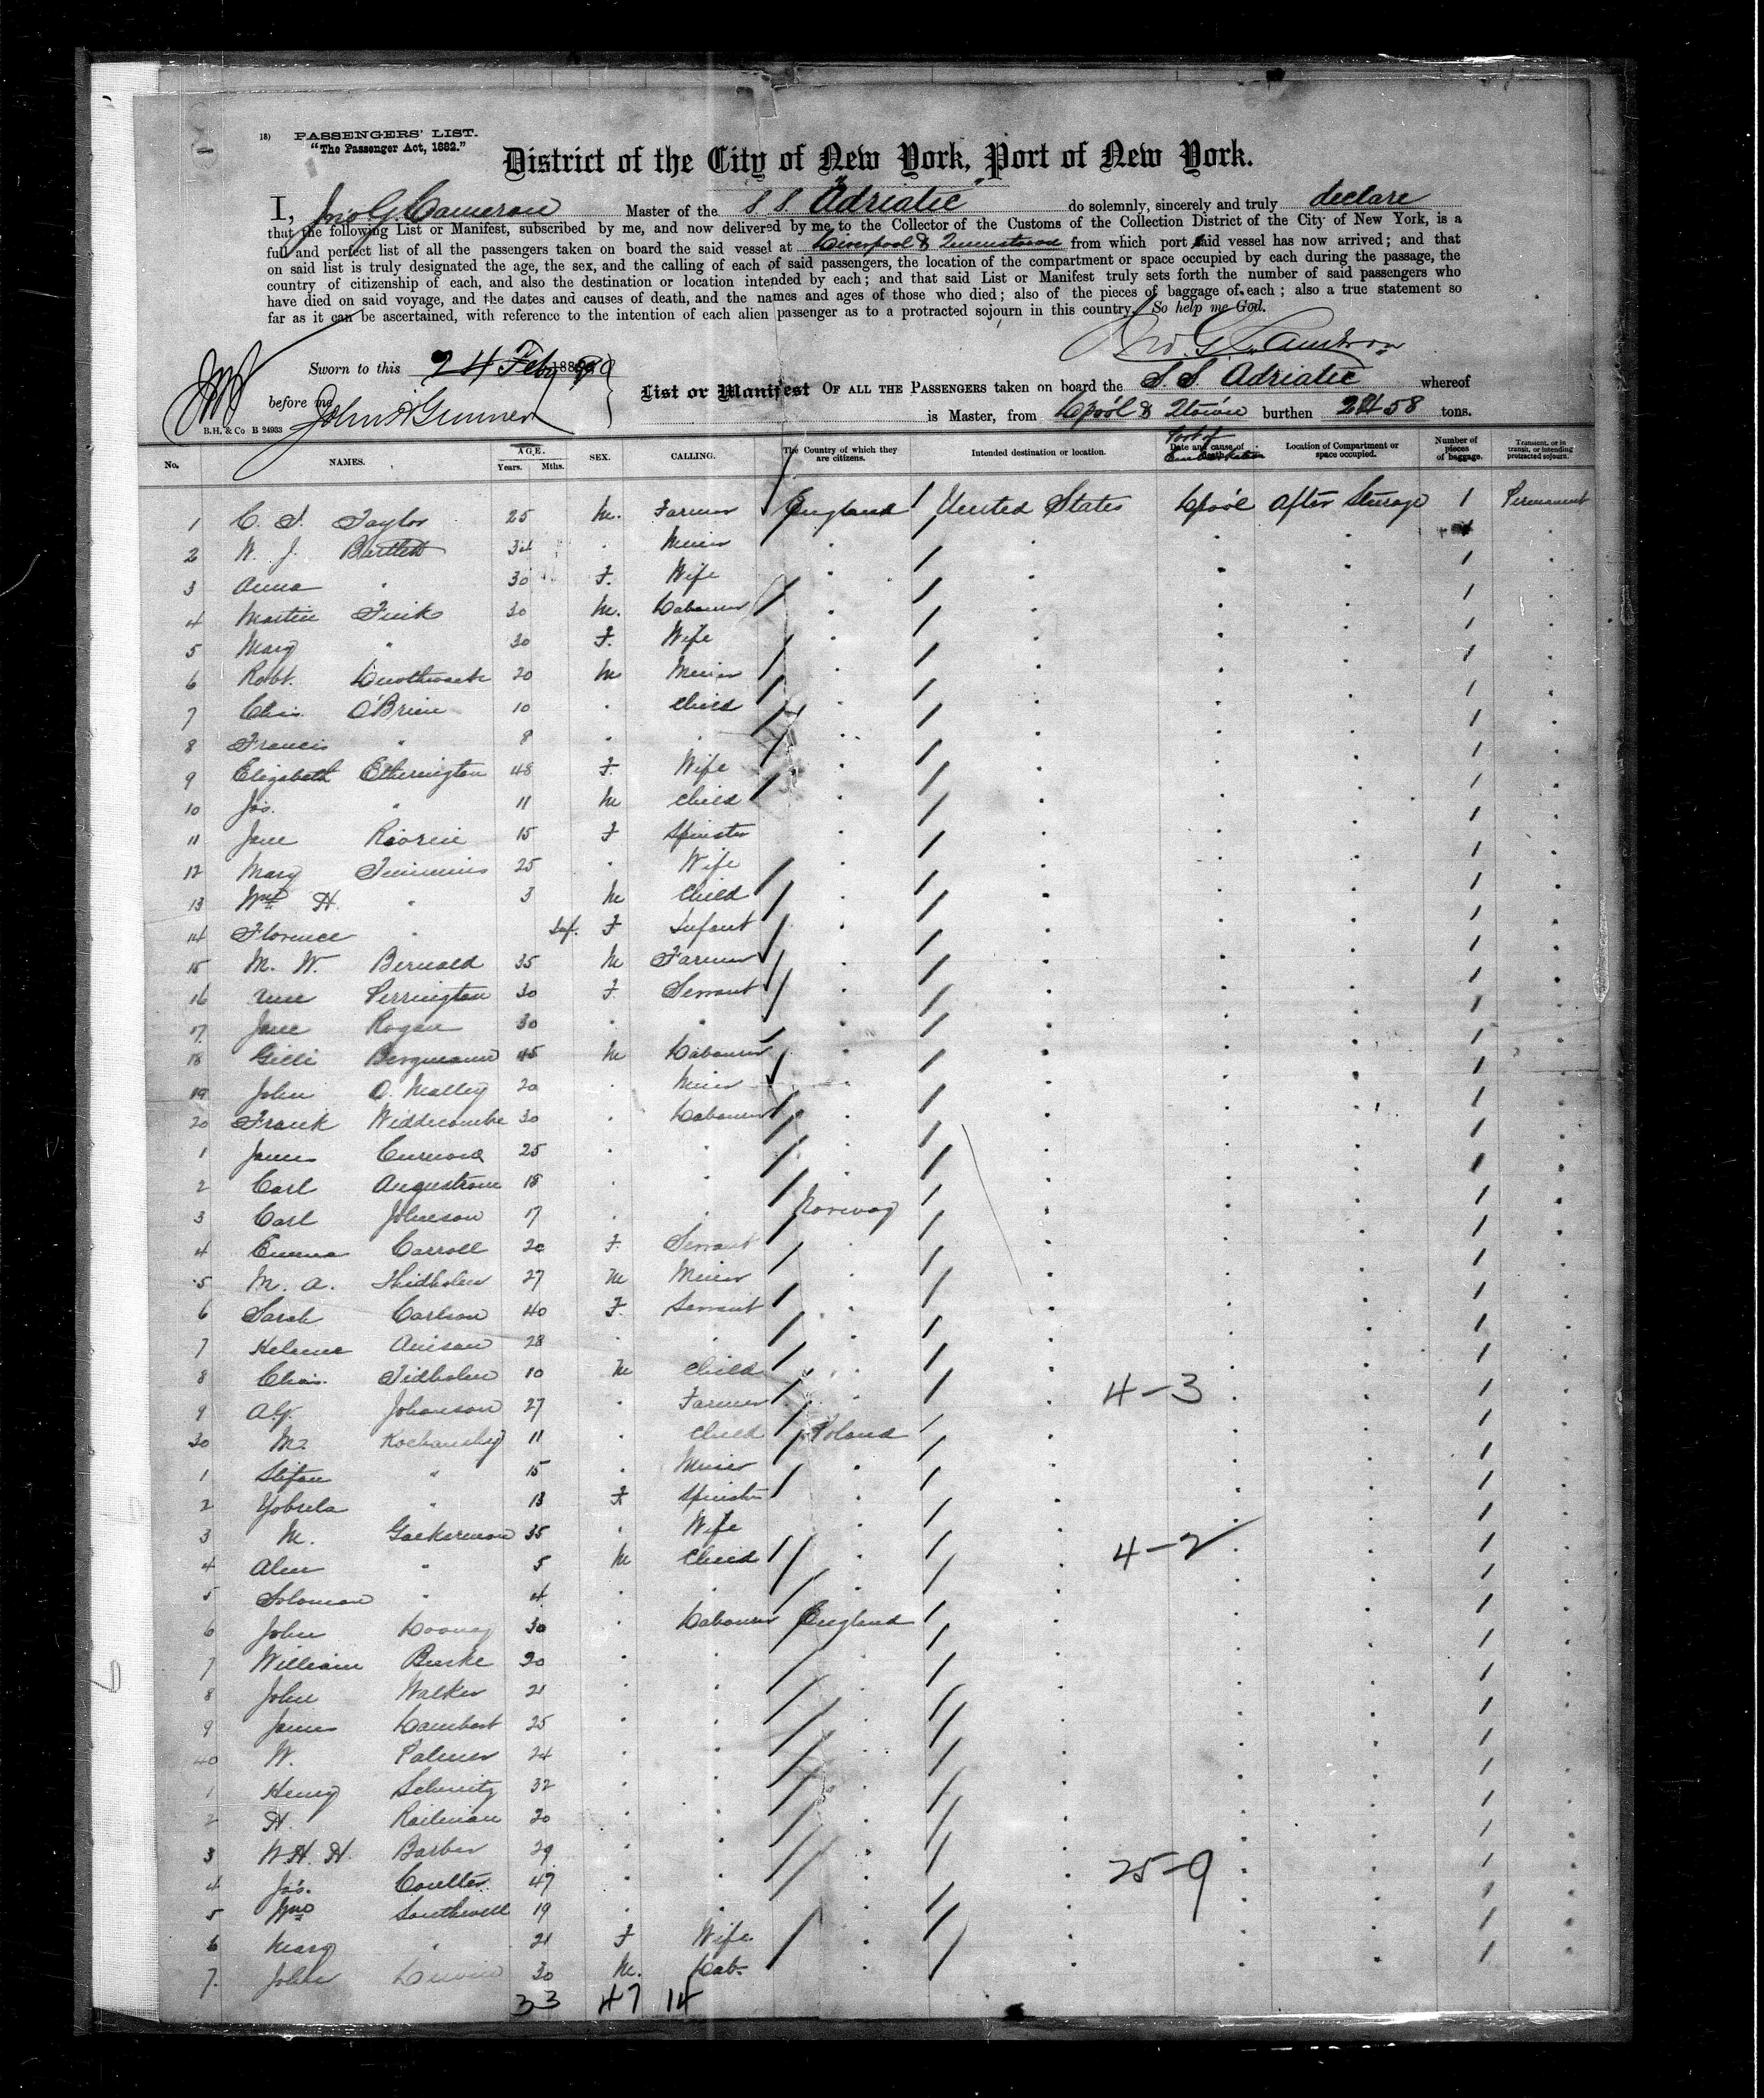 18) PASSENGERS' LIST.
"The Passenger Act, 1882."
District of the City of New York, Port of New York.
I, Jno G. Cameron Master of the S S "Adriatic" do solemnly, sincerely and truly declare
that the following List or Manifest, subscribed by me, and now delivered by me to the Collector of the Customs of the Collection District of the City of New York, is a
full and perfect list of all the passengers taken on board the said vessel at Liverpool & Queenstown from which port said vessel has now arrived; and that
on said list is truly designated the age, the sex, and the calling of each of said passengers, the location of the compartment or space occupied by each during the passage, the
country of citizenship of each, and also the destination or location intended by each; and that said List or Manifest truly sets forth the number of said passengers who
have died on said voyage, and the dates and causes of death, and the names and ages of those who died; also of the pieces of baggage of each; also a true statement so
far as it can be ascertained, with reference to the intention of each alien passenger as to a protracted sojourn in this country. So help me God.
Jno. G. Cameron
Sworn to this 24 Feby 188
before me
List or Manifest OF ALL THE PASSENGERS taken on board the S. S. Adriatic whereof
is Master, from L'pool & Q'town burthen 2458 tons.
B.H. & Co B 24933
No. NAMES. AGE. Years. Mths. SEX. CALLING. The Country of which they are citizens. Intended destination or location. Port of Embarkation Date and cause of Location of Compartment or space occupied. Number of pieces of baggage. Transient, or in transit, or intending protracted sojourn.
1 C. Taylor 25 M. Farmer England United States L'pool After Steerage 1 Permanent
2 W. J. Bartlett Miner 1
3 Anna " 30 F. Wife 1
4 Martin 30 M. Labourer 1
5 Mary " 30 F. Wife 1
6 Robt. 20 M Miner 1
7 Chas. O'Brien 10 Child 1
8 Francis " 8 1
9 Elizabeth Etherington 48 F. Wife 1
10 Jas. " 11 M Child 1
11 Jane 15 F Spinster 1
12 Mary Timmins 25 Wife 1
13 Wm H. " 3 M Child 1
14 Florence " Inf. F Infant 1
15 M. W. Bernald 35 M Farmer 1
16 Perrington 30 F. Servant 1
17 Jane Rogan 30 1
18 Bergmann 45 M Labourer 1
19 John O. Malley 20 Miner 1
20 Frank Widdecombe 30 Labourer 1
1 James Curnow 25 1
2 Carl Angustrom 18 1
3 Carl Johnson 17 Norway 1
4 Emma Carroll 20 F. Servant 1
5 M. A. 27 M Miner 1
6 Sarah Carlson 40 F. Servant 1
7 Helena 28 1
8 Chas. Tidholm 10 M Child 1
9 Alf. Johanson 27 Farmer 4-3 1
30 M. Kochansky 11 Child Poland 1
1 Stefan " 15 Miner 1
2 " 13 F Spinster 1
3 M. Gackerman 35 Wife 1
4 " 5 M Child 4-2 1
5 Solomon " 4 1
6 John 30 Labourer England 1
7 William Burke 20 1
8 John Walker 21 1
9 James Lambert 25 1
40 W. Palmer 24 1
1 Henry Schmitz 32 1
2 H. Railman 30 1
3 W. H. H. Barber 29 1
4 Jas. Coulter 47 25-9 1
5 Southwell 19 1
6 Mary " 21 F Wife 1
7. John 30 M. Lab. 1
33 47 14